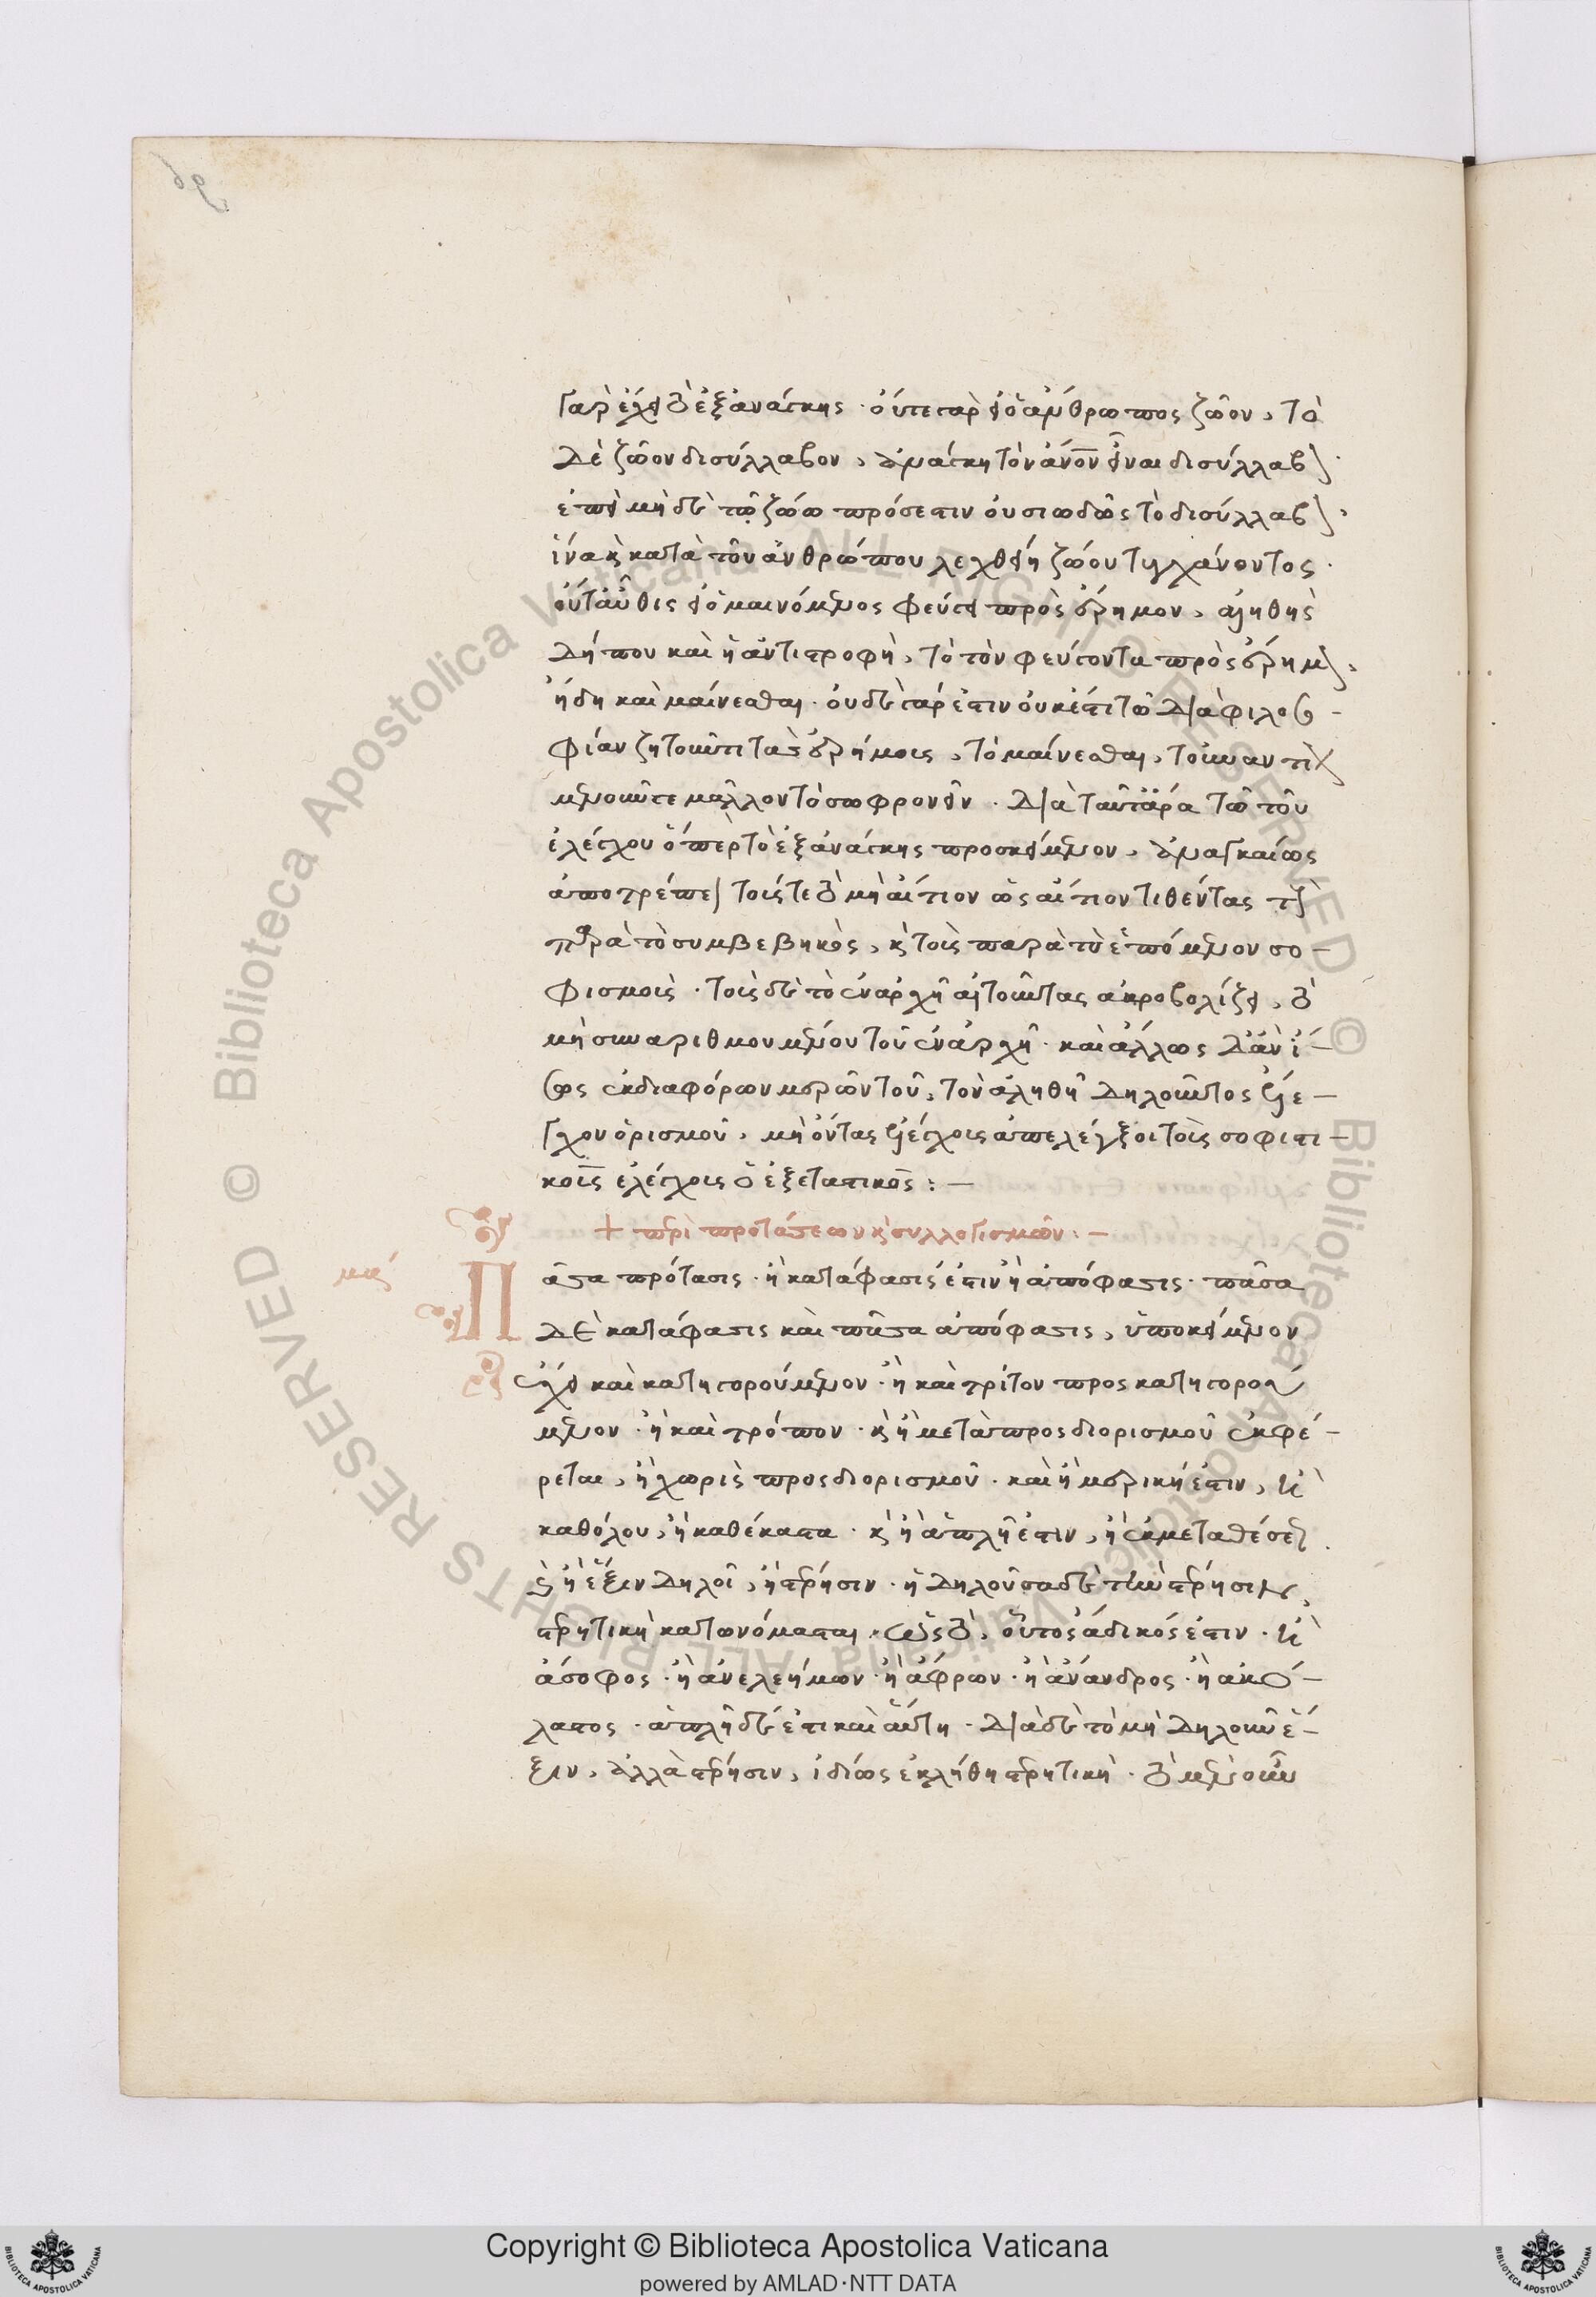 γὰρ ἔχει τὸ ἐξ ἀνάγκης · οὔτε γὰρ εἰ ὁ ἄνθρωπος ζῶον, τὸ
δὲ ζῶον δισύλλαβον, ἀνάγκη τὸν ἄνον εἶναι δισύλλαβ
ἐπεὶ μὴ δὲ τῷ ζώω πρόσεστιν οὐσιωδῶς τὸ δισύλλαβ
ἵνα κ κατὰ τοῦ ἀνθρώπου λεχθείη ζώου τυγχάνοντος ·
οὔτ' αὖθις εἰ ὁ μαινόμενος φεύγει πρὸς ἔρημον, ἀληθὴς
δήπου καὶ ἡ ἀντιστροφὴ, τὸ τὸν φεύγοντα πρὸς ἔρημ
ἤδη καὶ μαίνεσθαι · οὐδὲ γάρ ἐστιν οὐκ ἔστι τῶ διὰ φιλοσο-
φίαν ζητοῦντι τὰς ἐρήμους, τὸ μαίνεσθαι, τοὐναντί
μενοῦν τε μᾶλλον τὸ σωφρονεῖν · διὰ ταῦτ' ἄρα τῶ τοῦ
ἐλέγχου ὅπερ τὸ ἐξ ἀνάγκης προσκείμενον, ἀναγκαίως
ἀποτρέπει τούς τε τὸ μὴ αἴτιον ὡς αἴτιον τιθέντας τ
παρὰ τὸ συμβεβηκὸς, κ τοῖς παρὰ τὸ ἑπόμενον σο-
φισμοῖς · τοὺς δὲ τὸ ἐν ἀρχῇ αἰτοῦντας ἀκροβολίζει, τὸ
μὴ συναριθμουμένου τοῦ ἐν ἀρχῇ · καὶ ἄλλως δ' ἂν ἴ-
σως ἐκ διαφόρων μερῶν τοῦ, τὸν ἀληθῆ δηλοῦντος ἔλε-
γχον ὁρισμοῦ, μὴ ὄντας ἐλέγχους ἀπελέγξοι τοὺς σοφιστι-
κοὺς ἐλέγχους ὁ ἐξεταστικός : -
+ περὶ προτάσεων κ συλλογισμῶν : -
Πᾶσα πρότασις · ἢ κατάφασίς ἐστιν ἢ ἀπόφασις · πᾶσα
δὲ κατάφασις καὶ πᾶσα ἀπόφασις, ὑποκείμενον
ἔχει καὶ κατηγορούμενον · ἢ καὶ τρίτον προς κατηγορού
μενον · ἢ καὶ τρόπον · κ ἢ μετὰ προσδιορισμοῦ ἐκφέ-
ρεται, ἢ χωρὶς προσδιορισμοῦ · καὶ ἢ μερική ἐστιν, ἢ
καθόλου, ἢ καθέκαστα · κ ἢ ἁπλῆ ἐστιν, ἢ ἐκ μεταθέσε
κ ἢ ἕξιν δηλοῖ, ἢ στέρησιν · ἡ δηλοῦσα δὲ τὴν στέρησιν,
στερητικὴ κατωνόμασται, ὡς τὸ, οὗτος ἄδικός ἐστιν · ἢ
ἄσοφος · ἢ ἀνελεήμων · ἢ ἄφρων · ἢ ἄνανδρος · ἢ ἀκό-
λαστος · ἁπλῆ δέ ἐστι καὶ αὕτη · διὰ δὲ τὸ μὴ δηλοῦν ἕ-
ξιν, ἀλλὰ στέρησιν, ἰδίως ἐκλήθη στερητικὴ · τὸ μὲν οὖν
Copyright © Biblioteca Apostolica Vaticana
powered by AMLAD·NTT DATA